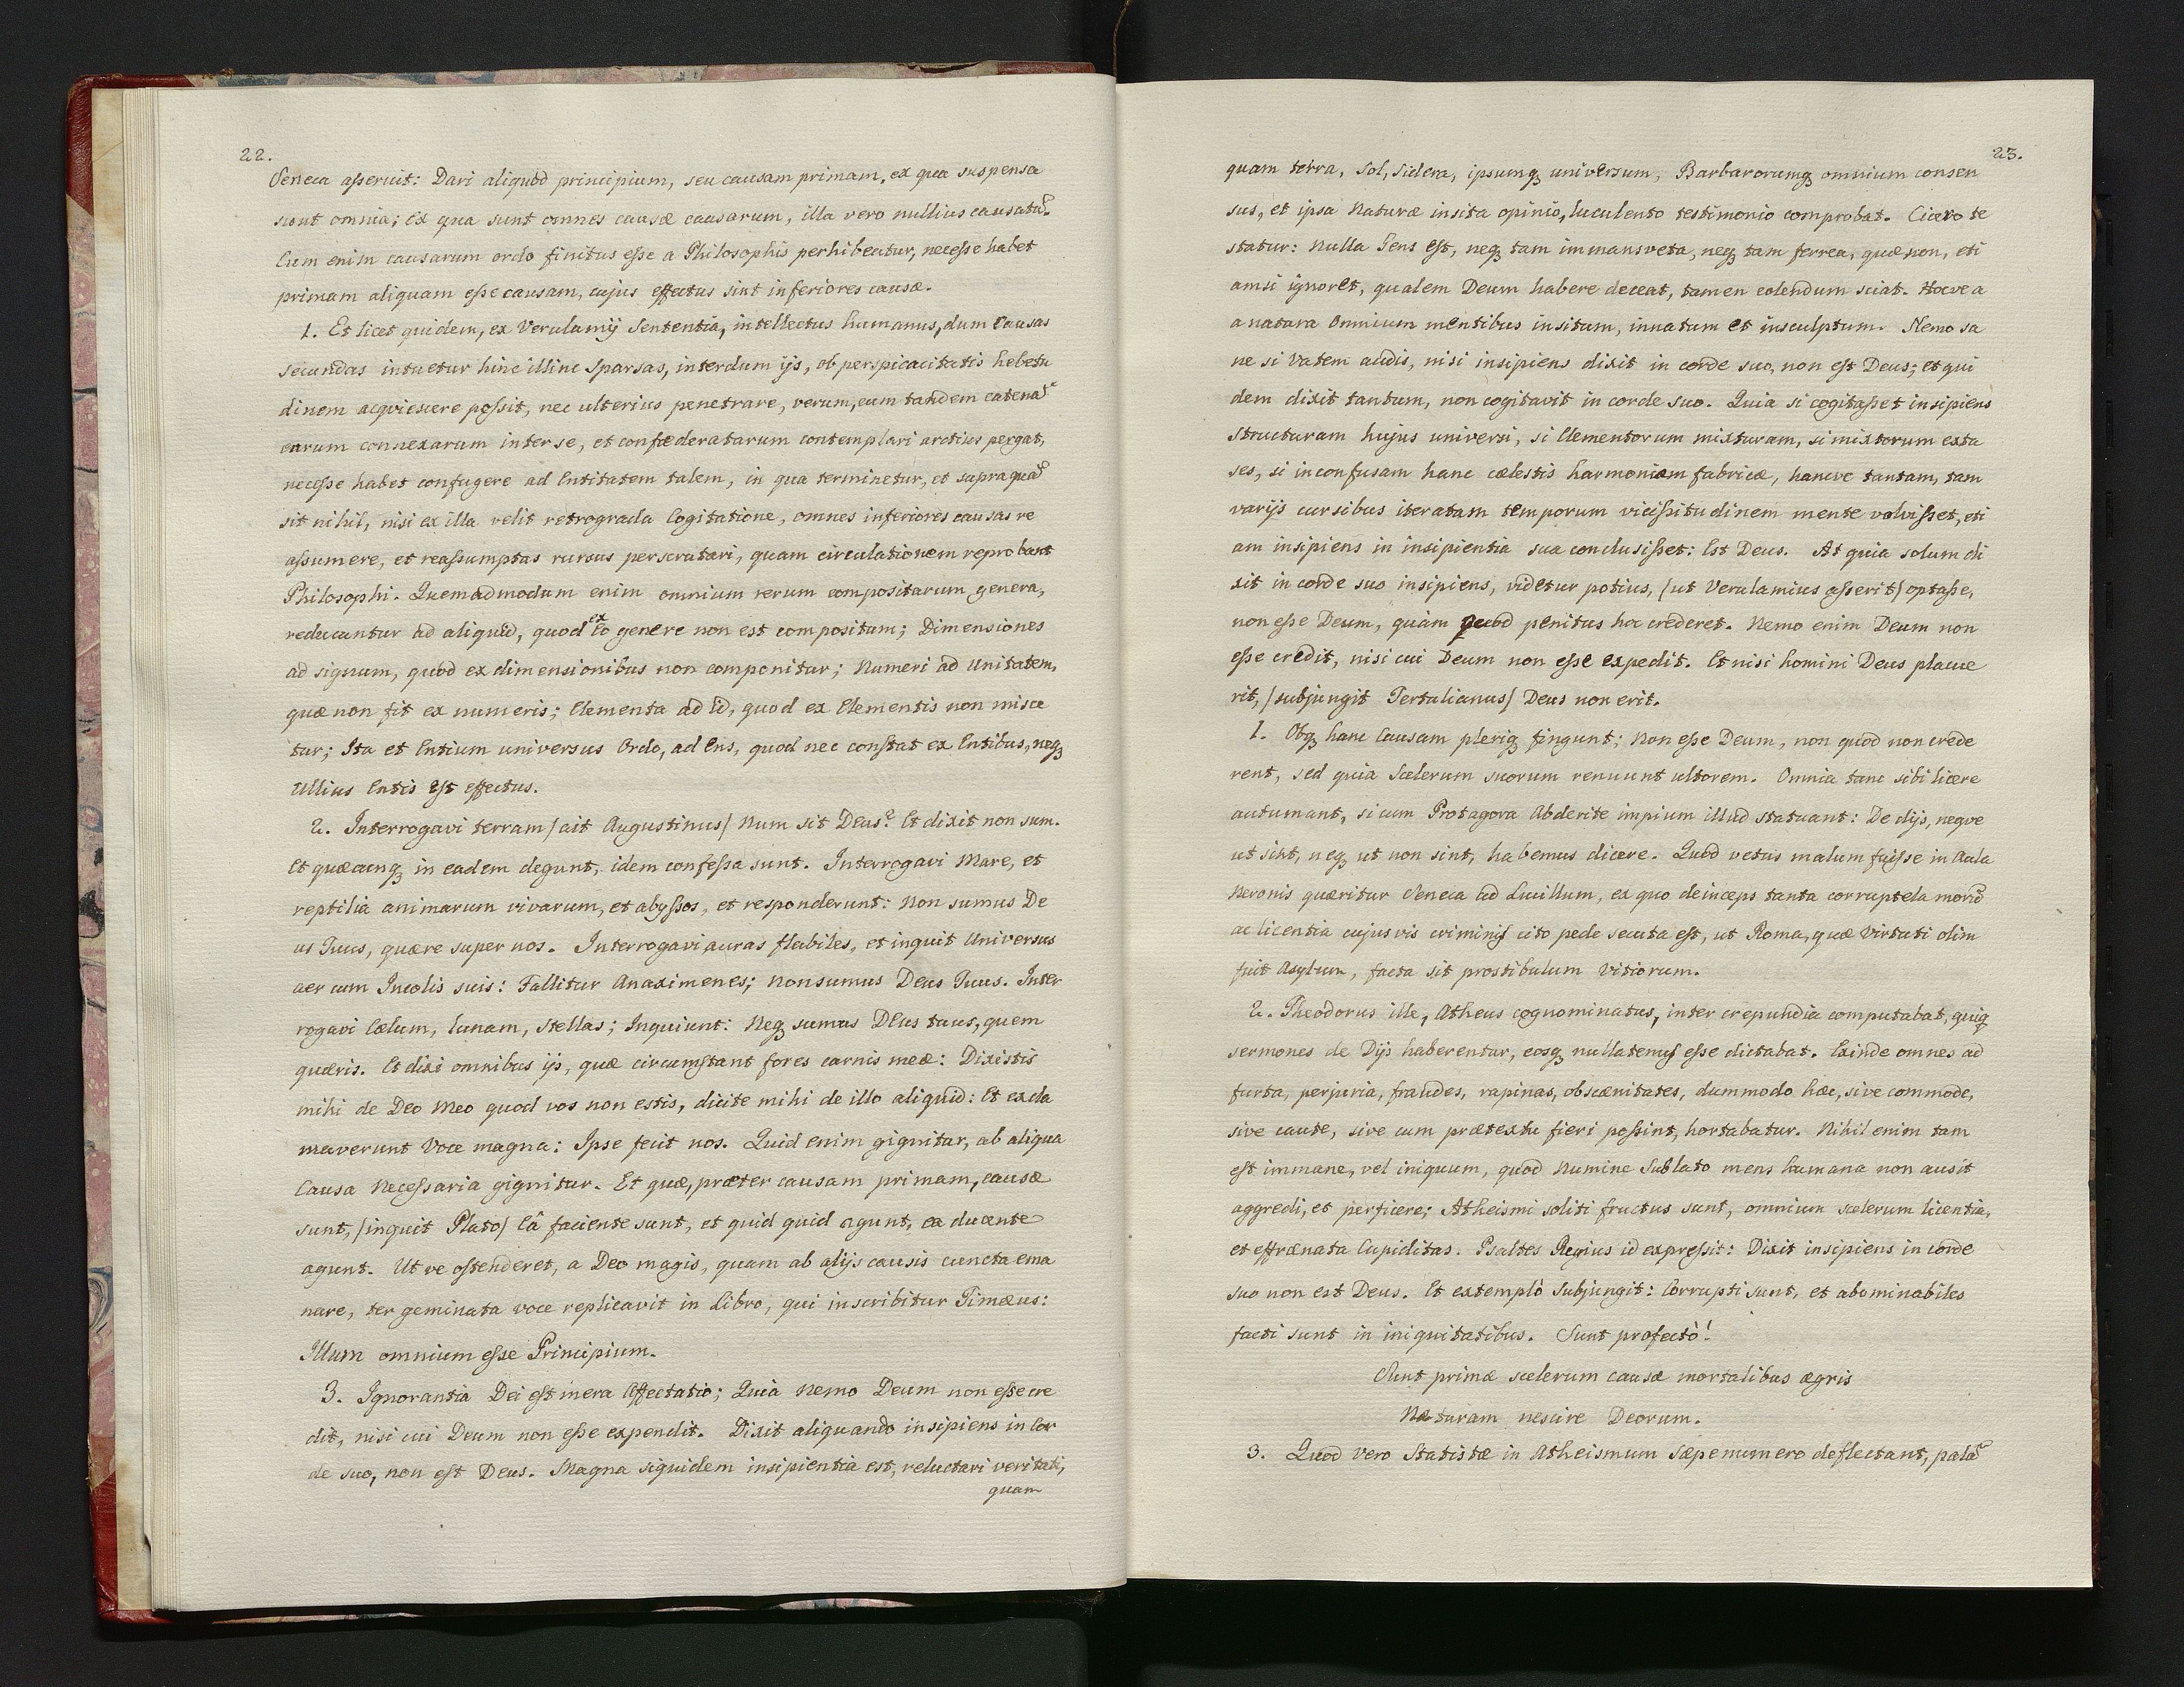 22.
Seneca asseruit: Dari aliquod principium, seu causam primam, ex qua suspensa
sunt omnia; ex qua sunt omnes causæ causarum, illa vero nullius causatū.
Cum enim causarum ordo finitus esse a Philosophis perhibeatur, necesse habet
primam aliquam esse causam, cujus effectus sint inferiores causæ.
1. Et licet quidem, ex Verulamij Sententia, intellectus humanus, dum Causas
secundas intuetur hinc illinc Sparsas, interdum ijs, ob perspicacitatis hebetu
dinem acqviescere possit, nec ulterius penetrare, verum, cum tandem catenā
earum connexarum inter se, et confœderatarum contemplari arctius pergat,
necesse habet confugere ad Entitatem talem, in qua terminetur, et supra quā
sit nihil, nisi ex illa velit retrograda Cogitatione, omnes inferiores causas re
assumere, et reassumptas rursus perscrutari, quam circulationem reprobant
Philosophi. Quemadmodum enim omnium rerum compositarum genera,
reducuntur ad aliquid, quod ex eo genere non est compositum; Dimensiones
ad signum, quod ex dimensionibus non componitur; Numeri ad Unitatem,
quæ non fit ex numeris; Elementa ad id, quod ex Elementis non misce
tur; Ita et Entium universus Ordo, ad Ens, quod nec constat ex Entibus, neq3
Ullius Entis est effectus.
2. Interrogavi terram /ait Augustinus/ Num sit Deus? Et dixit non sum.
Et quæcunq3 in eadem degunt, idem confessa sunt. Interrogavi Mare, et
reptilia animarum vivarum, et abyssos, et responderunt: Non sumus De
us Tuus, quære super nos. Interrogavi auras flabiles, et inquit Universus
aer cum Incolis suis: Fallitur Anaximenes; non sumus Deus Tuus. Inter
rogavi Cælum, lunam, stellas; Inquiunt: Neq3 sumus DEus tuus, quem
quæris. Et dixi omnibus ijs, quæ circumstant fores carnis meæ: Dixistis
mihi de Deo Meo quod vos non estis, dicite mihi de illo aliquid: Et excla
maverunt Voce magna: Ipse fecit nos. Quid enim gignitur, ab aliqua
Causa Necessaria gignitur. Et quæ, præter causam primam, causæ
sunt, /inquit Plato/ Eâ faciente sunt, et quid quid agunt, ea ducente
agunt. Ut ve ostenderet, a Deo magis, quam ab alijs causis cuncta ema
nare, ter geminata voce replicavit in Libro, qui inscribitur Timæus:
Illum omnium esse Principium.
3. Ignorantia Dei est mera Affectatio; Quia Nemo Deum non esse cre
dit, nisi cui Deum non esse expendit. Dixit aliquando insipiens in Cor
de suo, non est Deus. Magna siquidem insipientia est, reluctari veritati,
quam
23.
quam terra, Sol, Sidera, ipsumq3 universum, Barbarorumq3 omnium consen
sus, et ipsa Naturæ insita opinio, luculento testimonio comprobat. Cicero te
statur: Nulla Gens est, neq3 tam immansveta, neq3 tam ferrea, quæ non, eti
amsi ignoret, qualem Deum habere deceat, tamen colendum sciat. Hocve a
a natura Omnium mentibus insitum, innatum et insculptum. Nemo sa
ne si Vatem audis, nisi insipiens dixit in corde suo, non est Deus; et qui
dem dixit tantum, non cogitavit in corde suo. Quia si cogitasset insipiens
Structuram hujus universi, si Elementorum mixturam, si mixtorum exta
ses, si inconfusam hanc cælestis harmoniam fabricæ, hancve tantam, tam
varijs cursibus iteratam temporum vicissitudinem mente volvisset, eti
am insipiens in insipientia sua conclusisset: Est Deus. At quia solum di
xit in corde suo insipiens, videtur potius, /ut Verulamius asserit/ optasse,
non esse Deum, quàm quod penitus hoc crederet. Nemo enim Deum non
esse credit, nisi cui Deum non esse expedit. Et nisi homini Deus placue
rit, /subjungit Tertulianus/ Deus non erit.
1. Obq3 hanc Causam pleriq3 fingunt; Non esse Deum, non quod non crede
rent, sed quia Scelerum suorum renuunt ultorem. Omnia tunc sibi licere
autumant, si cum Protagora Abderite impium illud statuant: De dijs, neqve
ut sint, neq3 ut non sint, habemus dicere. Quod vetus malum fuisse in Aula
Neronis quæritur Seneca ad Lucillum, ex quo deinceps tanta corruptela morū
ac licentia cujusvis criminis cito pede secuta est, ut Roma, quæ Virtuti olim
fuit Asylum, facta sit prostibulum Vitiorum.
2. Theodorus ille, Atheus cognominatus, inter crepundia computabat, quiq3
sermones de Dijs haberentur, eosq3 nullatenus esse dictabat. Exinde omnes ad
furta, perjuria, fraudes, rapinas, obscænitates, dummodo hæc, sive commode,
sive caute, sive cum prætextu fieri possint, hortabatur. Nihil enim tam
est immane, vel iniquum, quod Numine Sublato mens humana non ausit
aggredi, et perficere; Atheismi soliti fructus sunt, omnium scelerum licentia,
et effrænata Cupiditas. Psaltes Regius id expressit: Dixit insipiens in corde
suo non est Deus. Et extemplò Subjungit: Corrupti sunt, et abominabiles
facti sunt in iniquitatibus. Sunt profectò!
Sunt primæ scelerum causæ mortalibus ægris
Naturam nescire Deorum.
3. Quod vero Statistæ in Atheismum sæpenumero deflectant, palā